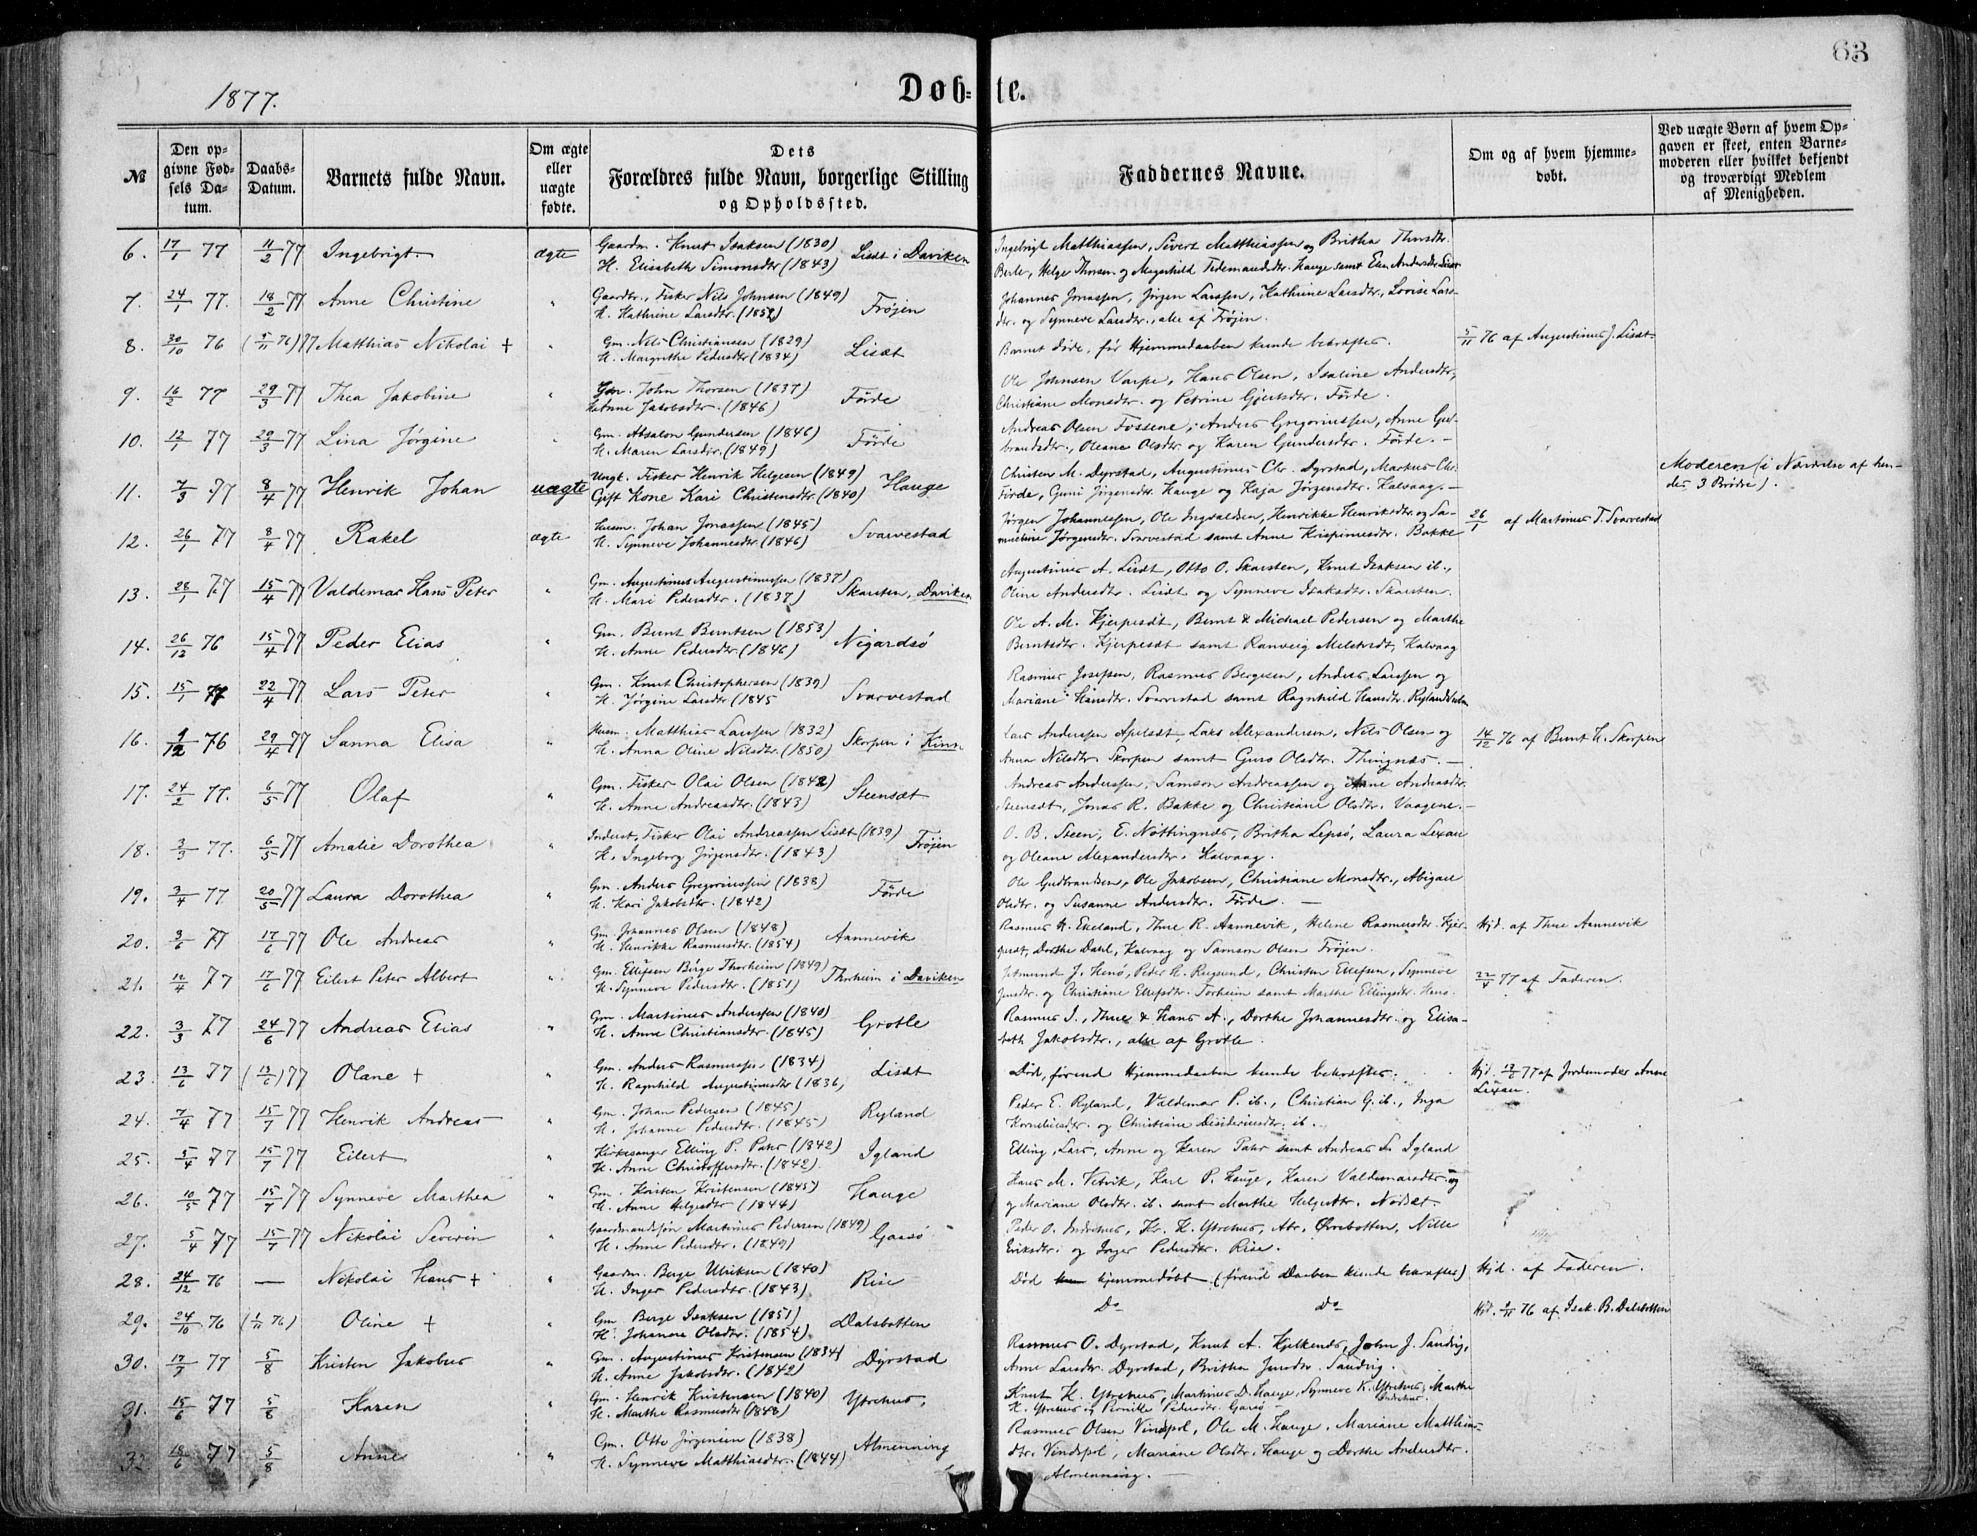 63
1877.
Døb-te.
№
Den op-
givne Fød-
sels Da-
tum.
Daabs-
Datum.
Barnets fulde Navn.
Om ægte
eller
uægte
fødte.
Dets
Forældres fulde Navn, borgerlige Stilling
og Opholdssted.
Faddernes Navne.
Om og af hvem hjemme-
døbt.
Ved uægte Børn af hvem Op-
gaven er skeet, enten Barne-
moderen eller hvilket bekjendt
og troværdigt Medlem
af Menigheden.
6. 17/1 77 11/2 77 Ingebrigt ægte Gaardm. Knut Isaksen (1830)
H. Elisabeth Simonsdtr (1843) Lisæt i Daviken
Ingebrigt Matthiassen, Sivert Matthiassen og Britha Thuesdtr.
Berle, Helge Thorsen og Magerhild Tedemandsdtr. Hauge samt Elen Andersdtr Lisæt
7. 24/1 77. 18/2 77 Anne Christine " Gaardbr., Fisker Nils Johnsen (1849)
H. Kathrine Larsdtr. (1852) Frøjen
Johannes Jonassen, Jørgen Larssen, Kathrine Larsdtr., Lovise Lars-
dtr. og Synneve Larsdtr., alle af Frøjen.
8. 30/10 76 (5/11 76) 77 Matthias Nikolai + " Gm. Nils Christiansen (1829)
H. Margrethe Pedersdtr (1834) Lisæt
Barnet døde, før Hjemmedaaben kunde bekræftes.
5/11 76 af Augustinus J. Lisæt
9. 16/2 77 29/3 77 Thea Jakobine " Gbr. John Thorsen (1837)
H. Anne Jakobsdtr. (1846) Førde
Ole Johnsen Varpe, Hans Olsen, Isaline Andersdtr,
Christiane Monsdtr. og Petrine Gjertsdtr. Førde.
10. 12/1 77 29/3 77 Lina Jørgine " Gm. Absalon Gundersen (1846)
H. Maren Larsdtr. (1849) Førde
Andreas Olsen Fossene, Anders Gregoriussen, Anne Gud-
brandsdtr., Oleane Olsdtr og Karen Gundersdtr. Førde. –
11. 7/3 77 8/4 77 Henrik Johan uægte Ungk. Fisker Henrik Helgesen (1849)
Gift Kone Kari Christensdtr. (1840) Hauge
Christen M. Dyrstad, Augustinus Chr. Dyrstad, Markus Chr.
Førde, Guni Jørgensdtr. Hauge og Kaja Jørgensdtr. Kalvaag. –
Moderen (i Nærværelse af hen-
des 3 Brødre).
12. 26/1 77 8/4 77 Rakel ægte Husm. Johan Jonassen (1845)
H. Synneve Johannesdtr. (1846) Svarvestad
Jørgen Johannessen, Ole Ingvaldsen, Henrikke Henriksdtr. og Sa-
mueline Jørgensdtr. Svarvestad samt Anne Krispinusdtr. Bakke
26/1 af Martinus T. Svarvestad
13. 28/1 77 15/4 77 Valdemar Hans Peter " Gm. Augustinus Augustinussen (1837)
H. Mari Pedersdtr. (1837) Skarsten, Daviken
Augustinus A. Lisæt, Otto O. Skarsten, Knut Isaksen ib.,
Oline Andersdtr. Lisæt og Synneve Isaksdtr. Skarsten.
14. 26/12 76 15/4 77 Peder Elias " Gm. Bernt Berntsen (1853)
H. Anne Pedersdtr (1846) Nigardsø
Ole A. M. Hjerpesæt, Bernt & Michael Pedersen og Marthe
Berntsdtr. Hjerpesæt samt Ranveig Kalvaag
15. 15/1 77 22/4 77 Lars Peter " Gm. Knut Christophersen (1839)
H. Jørgine Larsdtr (1845 Svarvestad
Rasmus Josefsen, Rasmus Børgesen, Anders Larssen og
Mariane Hansdtr. Svarvestad samt Ragnhild Hansdtr.
16. 9/12 76 29/4 77 Sanna Elisa " Husm. Matthias Larssen (1832)
H. Anna Oline Nilsdtr. (1850) Skorpen i Kinn
Lars Anderssen Apelsæt, Lars Alexandersen, Nils Olsen og
Anna Nilsdtr. Skorpen samt Guro Olsdtr. Thingnæs. –
14/12 76 af Bernt H. Skorpen
17. 24/2 77. 6/5 77 Olaf " Gm. Fisker Olai Olsen (1842)
H. Anne Andreasdtr. (1843) Steensæt
Andreas Anderssen, Samson Andreassen og Anne Andreasdtr.
Steensæt, Jonas R. Bakke og Christiane Olsdtr. Vaagene. –
18. 2/3 77. 6/5 77 Amalie Dorothea " Inderst, Fisker Olai Andreassen Lisæt (1839)
H. Ingeborg Jørgensdtr. (1843) Frøjen
O. B. Steen, E. Nøttingnæs, Britha Lepsø, Laura Lexau
og Oleane Alexandersdtr. Kalvaag.
19. 3/4 77 20/5 77 Laura Dorothea " Gm. Anders Gregoriussen (1838)
H. Kari Jakobsdtr. (1842) Førde
Ole Gudbrandsen, Ole Jakobsen, Christiane Monsdtr., Abigael
Olsdtr. og Susanne Andersdtr. Førde. –
20. 3/6 77 17/6 77 Ole Andreas " Gm. Johannes Olsen (1848)
H. Henrikke Rasmusdtr. (1854) Aannevik
Rasmus H. Ekeland, Thue R. Aannevik, Helene Rasmusdtr. Hjer-
pesæt, Dorthe Dahl, Kalvaag og Samson Olsen Frøjen.
Hjd. af Thue Aannevik
21. 12/4 77 17/6 77 Eilert Peter Albert " Gm. Ellefsen Børge Thorheim (1849)
H. Synneve Pedersdtr. (1851) Thorheim i Daviken
J. Henø, Peder R. Rugsund, Christen Ellefsen, Synneve
Jensdtr. og Christiane Ellefsdtr. Torheim samt Marthe Ellingsdtr. Henø.
22/4 77 af Faderen.
22. 3/3 77 24/6 77 Andreas Elias " Gm. Martinus Andersen (1840)
H. Anne Christiansdtr. (1845) Grotle
Rasmus I., Thue & Hans A., Dorthe Johannesdtr. og Elisa-
beth Jakobsdtr., alle af Grotle.
23. 13/6 77 (13/6) 77 Olane + " Gm. Anders Rasmussen (1834)
H. Ragnhild Augustinusdtr (1836) Lisæt
Død, førend Hjemmedaaben kunde bekræftes.
Hjd. 13/6 77 af Jordemoder Anne
Lexau.
24. 7/4 77 15/7 77 Henrik Andreas " Gm. Johan Pedersen (1845)
H. Johanne Pedersdtr. (1845) Ryland
Peder E. Ryland, Valdemar P. ib., Christian G. ib., Inga
Korneliusdtr. og Christiane Desideriusdtr. ib.
25. 5/4 77 15/7 77 Eilert " Kirkesanger Elling P. Pahr (1842)
H. Anne Christoffersdtr. (1842) Igland
Elling, Lars, Anne og Karen Pahr samt Andreas S. Igland
26. 10/5 77 15/7 77 Synneve Marthea " Gm. Kristen Kristensen (1845)
H. Anne Helgesdtr (1844) Hauge
Hans M. Vetvik, Karl P. Hauge, Karen Valdemarsdtr og
og Mariane Olsdtr. ib. samt Marthe Helgesdtr. Nødset.
27. 5/4 77 15/7 77 Nikolai Severin " Gaardmandssøn Martinus Pedersen (1849)
H. Anne Pedersdtr. (1849) Gaasø
Peder O. Indrehus, Kr. K. Ytrehus, Abr. Øvrebotten, Nille
Eriksdtr. og Inger Pedersdtr. Rise.
28. 24/12 76 — Nikolai Hans + " Gaardm. Berge Ulriksen (1840)
H. Inger Pedersdtr. (1843) Rise
Død hjemmedøbt (førend Daaben kunde bekræftes)
Hjd. af Faderen.
29. 24/10 76 (1/11 76) Oline + " Gm. Berge Isaksen (1851)
H. Johanne Olsdtr. (1854) Dalsbotten
Do do
Hjd. 9/11 76 af Isak B. Dalsbotten
30. 17/7 77 5/8 Kristen Jakobus " Gm. Augustinus Kristensen (1834)
H. Anne Jakobsdtr. (1842) Dyrstad
Rasmus O. Dyrstad, Knut A. Hjelkenes, John J. Sandvig,
Anne Larsdtr. Dyrstad, Britha Jensdtr. Sandvig.
31. 15/6 77 5/8 Karen " Gm. Henrik Kristensen (1840)
H. Marthe Rasmusdtr (1848) Ytrehus,
Knut K. Ytrehus, Martinus D. Hauge, Synneve K. Ytrehus, Marthe
K. Ytrehus og Pernille Pedersdtr. Gaasø –
32 18/6 77 5/8 Anne " Gm. Otto Jørgensen (1838)
H. Synneve Matthiasdtr. (1844) Almenning
Rasmus Olsen Vindspol, Ole M. Hauge, Mariane Matthias-
dtr. Vindspol, Mariane Olsdtr. Hauge og Dorthe Andersdtr.
Almenning. –